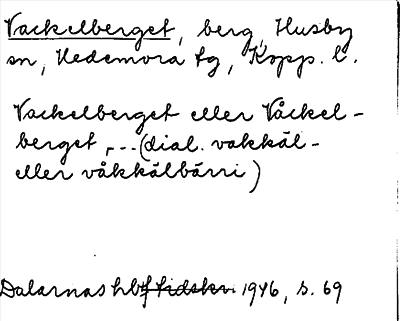 Vackelberget, berg, Husby
sn, Hedemora tg, Kopp. l.
Vackelberget eller Våckel-
berget,--(dial. vakkäl-
eller våkkälbärri)
Dalarnas hbf tidskr. 1946, s. 69